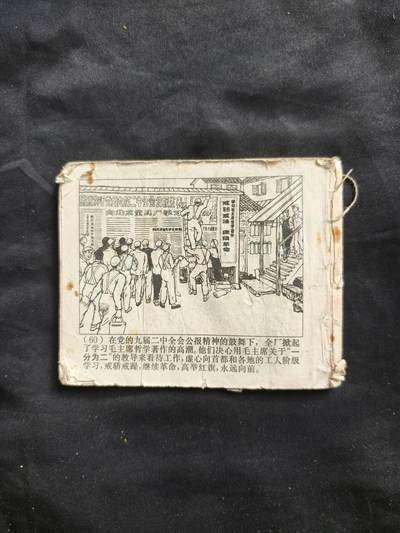 戒骄戒躁 继续革命
(60) 在党的九届二中全会公报精神的鼓舞下，全厂掀起
了学习毛主席哲学著作的高潮。他们决心用毛主席关于“一
分为二”的教导来看待工作，虚心向首都和各地的工人阶级
学习，戒骄戒躁，继续革命，高举红旗，永远向前。